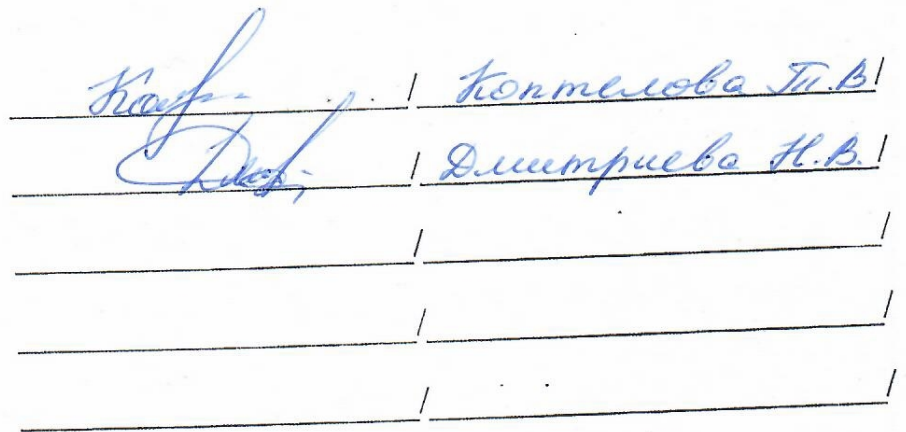 / Коптелова Т.В /
/ Дмитриева Н.В. /
/ /
/ /
/ /